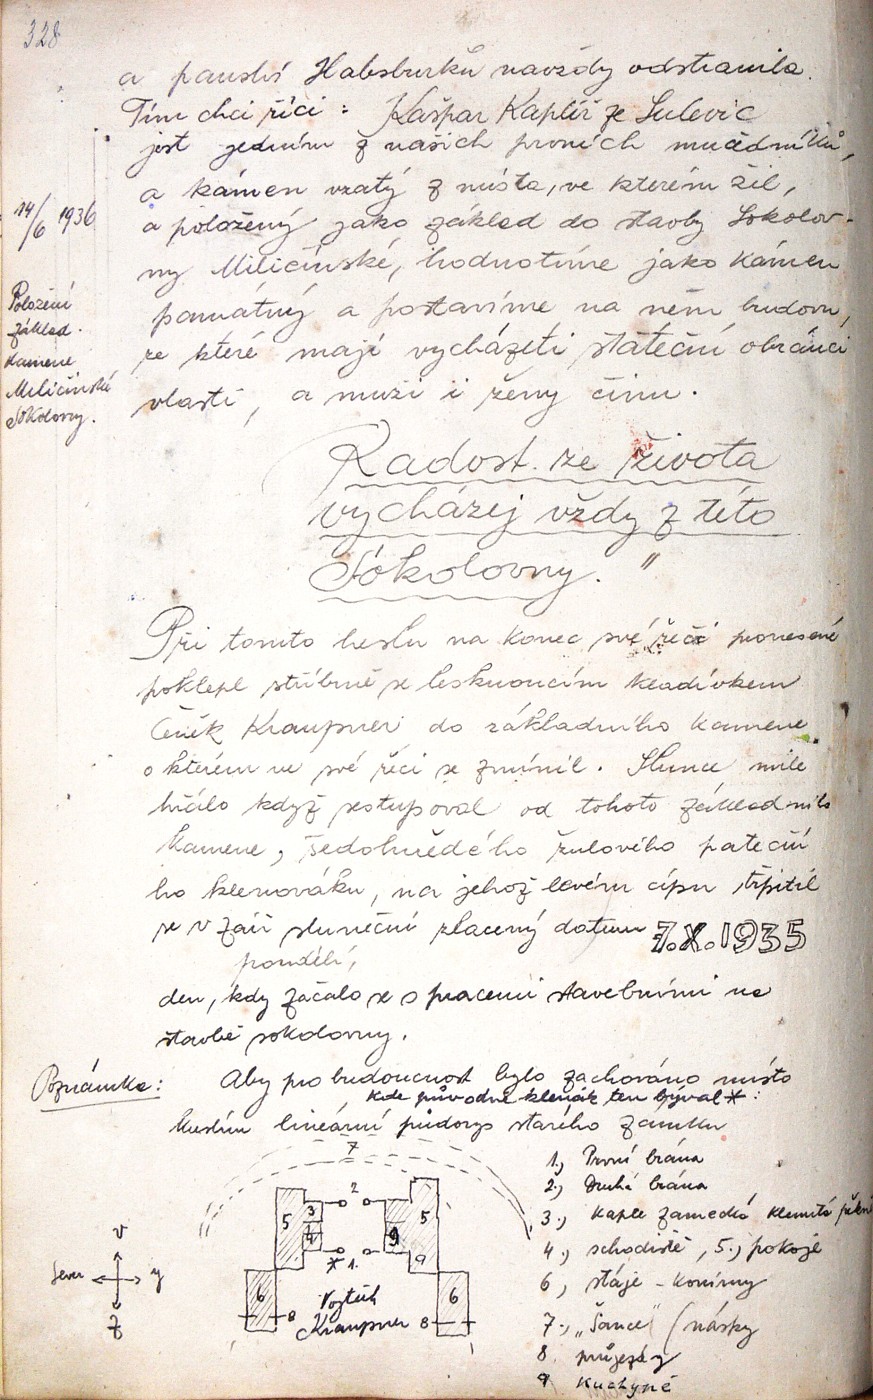 328
a panství Habsburků navždy odstranila.
Tím chci říci: Kašpar Kaplíř ze Sulevic
jest jedním z našich prvních mučedníků,
a kámen vzatý z místa, ve kterém žil,
14/6 1936
a položený jako základ do stavby Sokolov-
ny Miličínské, hodnotíme jako kámen
Položení
základ.
kamene
Miličínské
Sokolovny.
památný a postavíme na něm budovu,
ze které mají vycházeti stateční obránci
vlasti, a muži i ženy činu.
Radost ze života
vycházej vždy z této
Sokolovny."
Při tomto heslu na konec své řeči pronesené
poklepl stříbrně se lesknoucím kladívkem
Čeněk Kraupner do základního kamene
o kterém ve své řeči se zmínil. Slunce mile
hřálo když sestupoval od tohoto základního
kamene, šedohnědého žulového pateční
ho klenováku, na jehož levém cípu třpitil
se v záři sluneční zlacený datum 7.X.1935
pondělí,
den, kdy začalo se s pracemi stavebními na
stavbě sokolovny.
Poznámka: Aby pro budoucnost bylo zachováno místo
kde původně klenák ten býval*:
kreslím lineární půdorys starého zámku
7
2
5 3 4
9 5
9
* 1.
6 8
8 6
Vojtěch
Kraupner
v
Sever
y
Z
1., První brána
2., Druhá brána
3., kaple zámecká klenutá
4., schodiště, 5., pokoje
6, stáje - konírny
7., „Šance" (násky
8 průjezdy
9 kuchyně